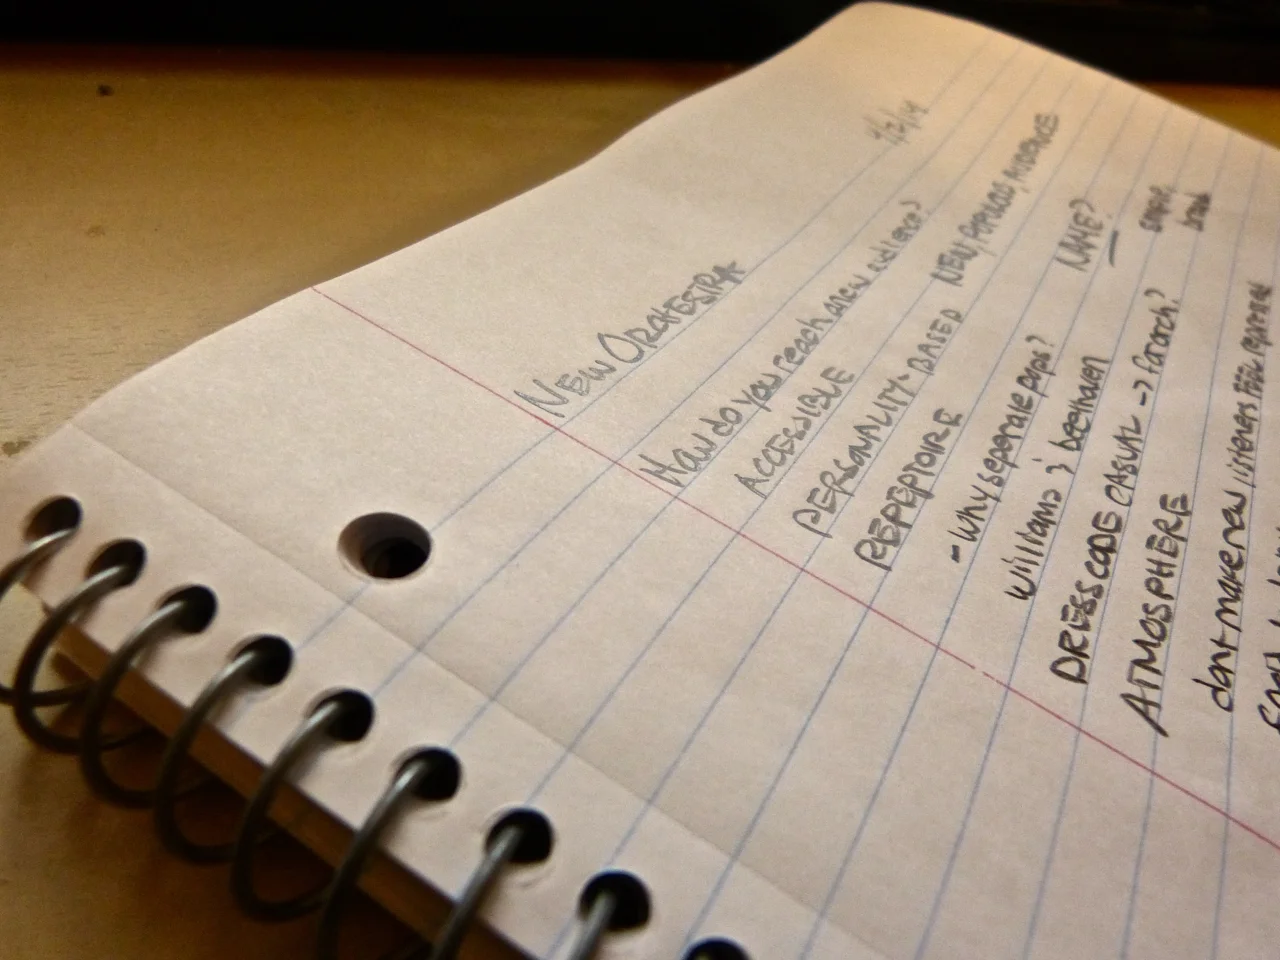 NEW ORCHESTRA
How do you reach a new audience?
ACCESSIBLE
PERSONALITY-BASED NEW, POPULAR, AUDIENCE
REPERTOIRE
- Why seperate pops? NAME?
Williams & beethoven simple,
DRESS CODE CASUAL -> for orch?
ATMOSPHERE
dont make new listeners feel